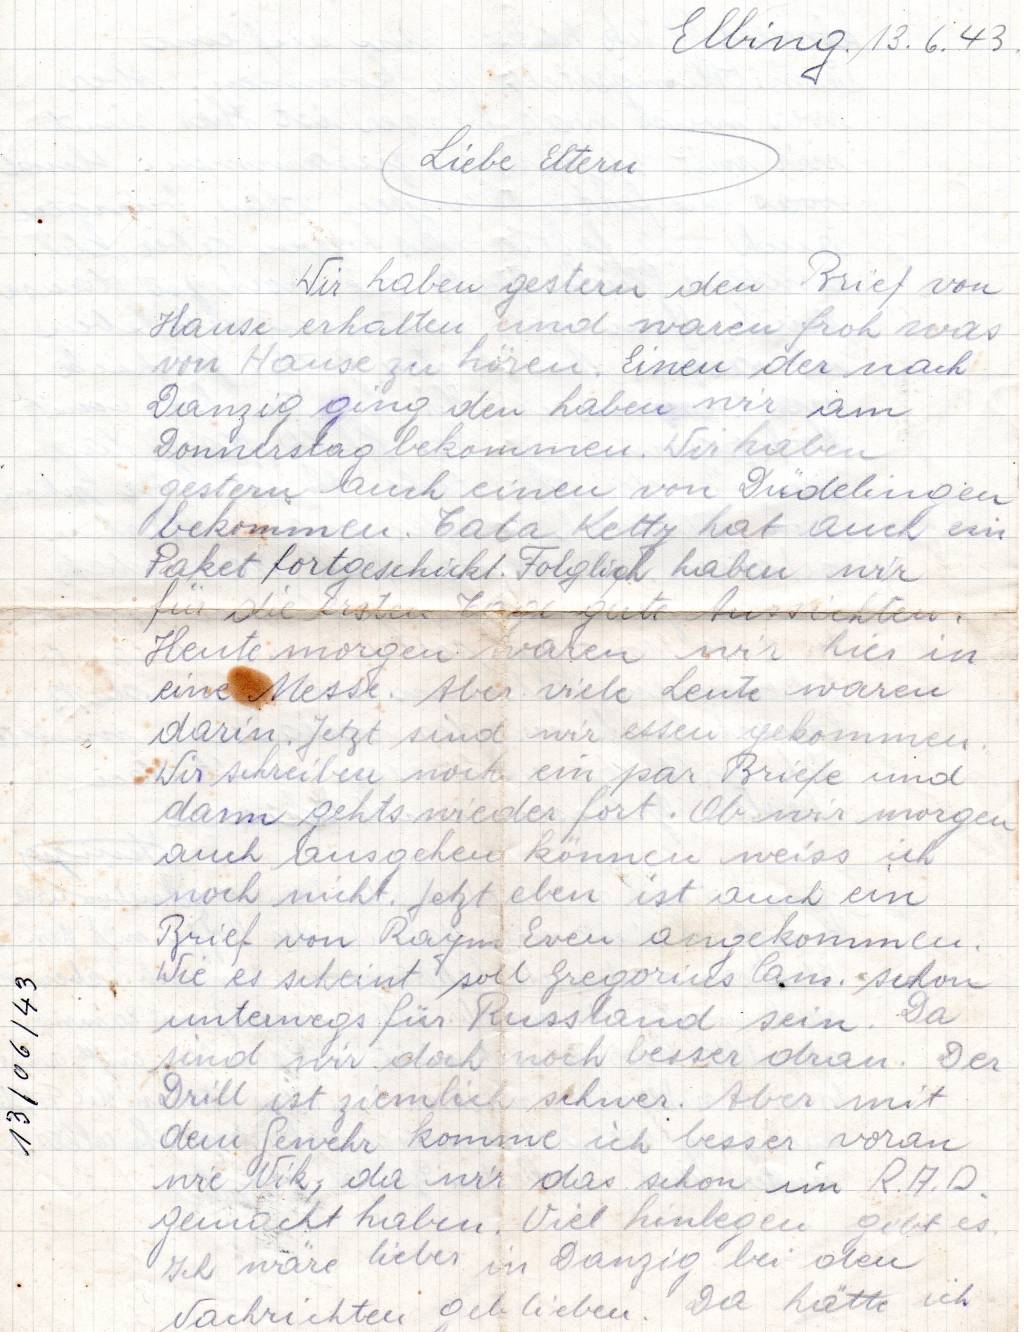 Elbing. 13.6.43.
Liebe Eltern
Wir haben gestern den Brief von
Hause erhalten und waren froh was
von Hause zu hören. Einen der nach
Danzig ging den haben wir am
Donnerstag bekommen. Wir haben
gestern auch einen von Düdelingen
bekommen. Tata Ketty hat auch ein
Paket fortgeschickt. Folglich haben wir
für die ersten Tage gute Aussichten.
Heute morgen waren wir hier in
eine Messe. Aber viele Leute waren
darin. Jetzt sind wir essen gekommen.
Wir schreiben noch ein par Briefe und
dann gehts wieder fort. Ob wir morgen
auch ausgehen können weiss ich
noch nicht. Jetzt eben ist auch ein
Brief von Raym Even angekommen.
Wie es scheint soll Gregorius Cam. schon
unterwegs für Russland sein. Da
sind wir doch noch besser dran. Der
Drill ist ziemlich schwer. Aber mit
dem Gewehr komme ich besser voran
wie Nik, da wir das schon im R.A.D.
gemacht haben. Viel hinlegen gibt es.
Ich wäre lieber in Danzig bei den
Nachrichten geblieben. Da hätte ich
13/06/43